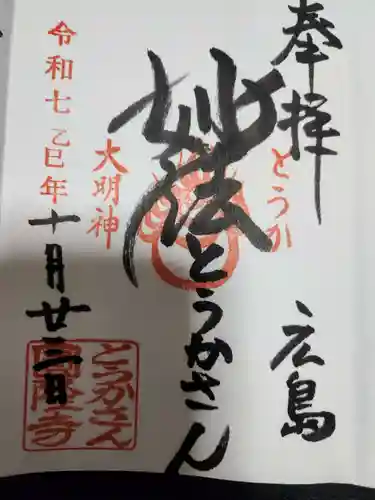 奉拝
広島
とうか
妙法とうかさん
大明神
令和七乙巳年十月廿三日
とうかさん
圓隆寺